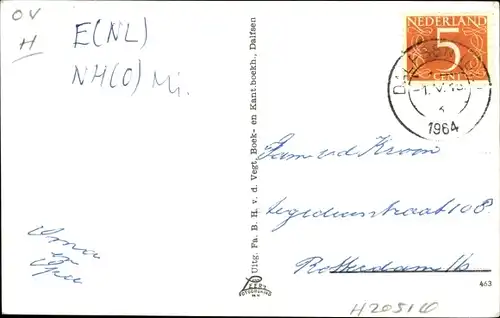 OV
H
E(NL)
NH(O) Mi.
NEDERLAND
5
CENT
1.V.
1964
Uitg. Fa. B. H. v. d. Vegt, Boek- en Kantboekh., Dalfsen
Fam v d Kroon
Aegidiusstraat 108
Rotterdam 16
Oma
en
Opa
463
H20516